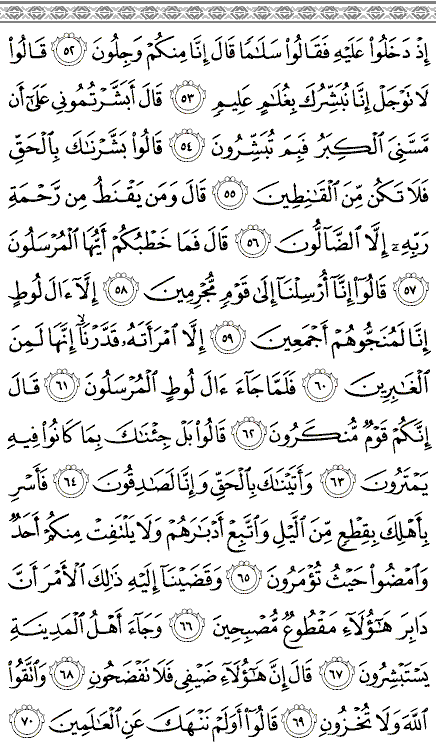 إِذْ دَخَلُوا۟ عَلَيْهِ فَقَالُوا۟ سَلَـٰمًا قَالَ إِنَّا مِنكُمْ وَجِلُونَ ٥٢ قَالُوا۟
لَا تَوْجَلْ إِنَّا نُبَشِّرُكَ بِغُلَـٰمٍ عَلِيمٍ ٥٣ قَالَ أَبَشَّرْتُمُونِى عَلَىٰٓ أَن
مَّسَّنِىَ ٱلْكِبَرُ فَبِمَ تُبَشِّرُونَ ٥٤ قَالُوا۟ بَشَّرْنَـٰكَ بِٱلْحَقِّ
فَلَا تَكُن مِّنَ ٱلْقَـٰنِطِينَ ٥٥ قَالَ وَمَن يَقْنَطُ مِن رَّحْمَةِ
رَبِّهِۦٓ إِلَّا ٱلضَّآلُّونَ ٥٦ قَالَ فَمَا خَطْبُكُمْ أَيُّهَا ٱلْمُرْسَلُونَ
٥٧ قَالُوٓا۟ إِنَّآ أُرْسِلْنَآ إِلَىٰ قَوْمٍ مُّجْرِمِينَ ٥٨ إِلَّآ ءَالَ لُوطٍ
إِنَّا لَمُنَجُّوهُمْ أَجْمَعِينَ ٥٩ إِلَّا ٱمْرَأَتَهُۥ قَدَّرْنَآ ۙ إِنَّهَا لَمِنَ
ٱلْغَـٰبِرِينَ ٦٠ فَلَمَّا جَآءَ ءَالَ لُوطٍ ٱلْمُرْسَلُونَ ٦١ قَالَ
إِنَّكُمْ قَوْمٌ مُّنكَرُونَ ٦٢ قَالُوا۟ بَلْ جِئْنَـٰكَ بِمَا كَانُوا۟ فِيهِ
يَمْتَرُونَ ٦٣ وَأَتَيْنَـٰكَ بِٱلْحَقِّ وَإِنَّا لَصَـٰدِقُونَ ٦٤ فَأَسْرِ
بِأَهْلِكَ بِقِطْعٍ مِّنَ ٱلَّيْلِ وَٱتَّبِعْ أَدْبَـٰرَهُمْ وَلَا يَلْتَفِتْ مِنكُمْ أَحَدٌ
وَٱمْضُوا۟ حَيْثُ تُؤْمَرُونَ ٦٥ وَقَضَيْنَآ إِلَيْهِ ذَٰلِكَ ٱلْأَمْرَ أَنَّ
دَابِرَ هَـٰٓؤُلَآءِ مَقْطُوعٌ مُّصْبِحِينَ ٦٦ وَجَآءَ أَهْلُ ٱلْمَدِينَةِ
يَسْتَبْشِرُونَ ٦٧ قَالَ إِنَّ هَـٰٓؤُلَآءِ ضَيْفِى فَلَا تَفْضَحُونِ ٦٨ وَٱتَّقُوا۟
ٱللَّهَ وَلَا تُخْزُونِ ٦٩ قَالُوٓا۟ أَوَلَمْ نَنْهَكَ عَنِ ٱلْعَـٰلَمِينَ ٧٠